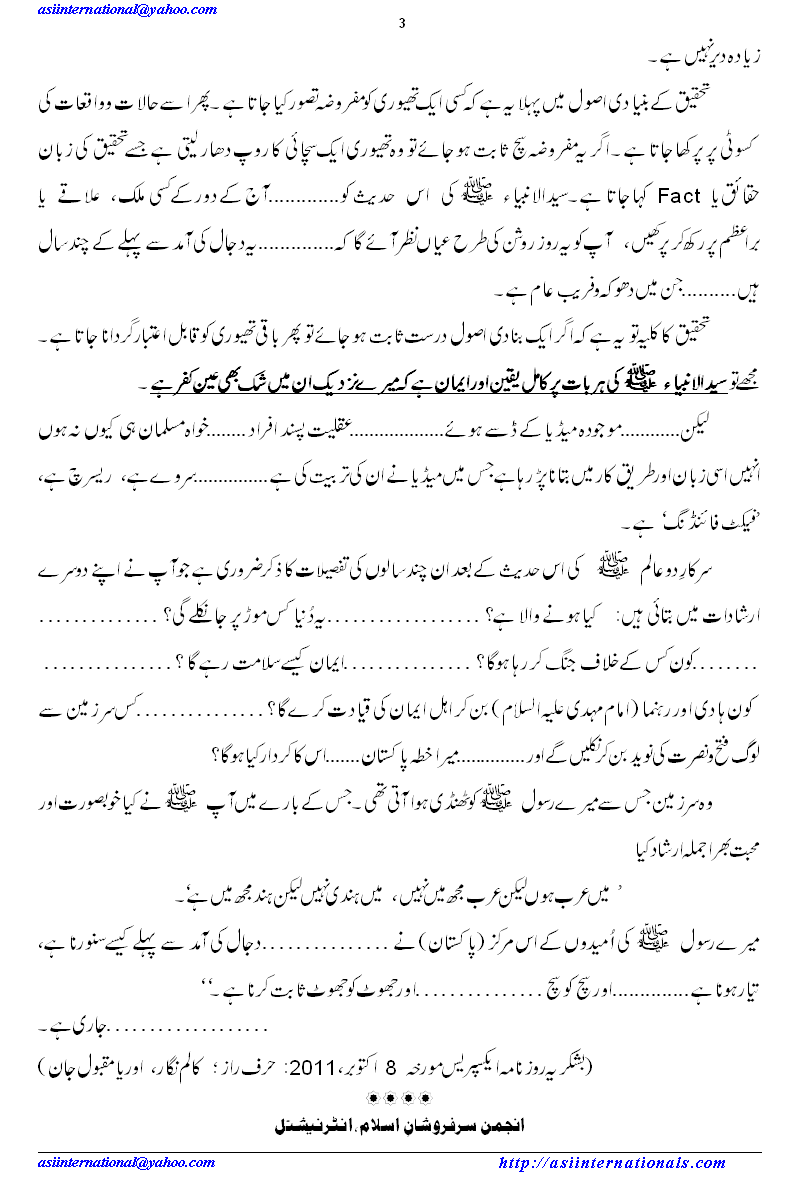 asiinternational@yahoo.com
3
زیادہ دیر نہیں ہے۔
تحقیق کے بنیادی اصول میں پہلا یہ ہے کہ کسی ایک تھیوری کو مفروضہ تصور کیا جاتا ہے۔ پھر اسے حالات و واقعات کی
کسوٹی پر پرکھا جاتا ہے۔ اگر یہ مفروضہ سچ ثابت ہو جائے تو وہ تھیوری ایک سچائی کا روپ دھار لیتی ہے جسے تحقیق کی زبان
حقائق یا Fact کہا جاتا ہے۔ سید الانبیاء ﷺ کی اس حدیث کو.............آج کے دور کے کسی ملک، علاقے یا
براعظم پر رکھ کر پرکھیں، آپ کو یہ روز روشن کی طرح عیاں نظر آئے گا کہ..............یہ دجال کی آمد سے پہلے کے چند سال
ہیں..........جن میں دھوکہ و فریب عام ہے۔
تحقیق کا کلیہ تو یہ ہے کہ اگر ایک بنادی اصول درست ثابت ہو جائے تو پھر باقی تھیوری کو قابل اعتبار گردانا جاتا ہے۔
مجھے تو سید الانبیاء ﷺ کی ہر بات پر کامل یقین اور ایمان ہے کہ میرے نزدیک ان میں شک بھی عین کفر ہے۔
لیکن...........موجودہ میڈیا کے ڈسے ہوئے..................عقلیت پسند افراد........خواہ مسلمان ہی کیوں نہ ہوں
انہیں اسی زبان اور طریق کار میں بتانا پڑ رہا ہے جس میں میڈیا نے ان کی تربیت کی ہے..............سروے ہے، ریسرچ ہے،
’فیکٹ فائنڈنگ‘ ہے۔
سرکارِ دو عالم ﷺ کی اس حدیث کے بعد ان چند سالوں کی تفصیلات کا ذکر ضروری ہے جو آپ نے اپنے دوسرے
ارشادات میں بتائی ہیں: کیا ہونے والا ہے؟ ..................یہ دُنیا کس موڑ پر جا نکلے گی؟ ..............
........کون کس کے خلاف جنگ کر رہا ہوگا؟ ...............ایمان کیسے سلامت رہے گا؟ ...............
کون ہادی اور رہنما (امام مہدی علیہ السلام) بن کر اہل ایمان کی قیادت کرے گا؟ ...............کس سرزمین سے
لوگ فتح و نصرت کی نوید بن کر نکلیں گے اور.............میرا خطہ پاکستان.......اس کا کردار کیا ہوگا؟
وہ سرزمین جس سے میرے رسول ﷺ کو ٹھنڈی ہوا آتی تھی۔ جس کے بارے میں آپ ﷺ نے کیا خوبصورت اور
محبت بھرا جملہ ارشاد کیا
’ میں عرب ہوں لیکن عرب مجھ میں نہیں، میں ہندی نہیں لیکن ہند مجھ میں ہے‘۔
میرے رسول ﷺ کی اُمیدوں کے اس مرکز (پاکستان) نے ...............دجال کی آمد سے پہلے کیسے سنورنا ہے،
تیار ہونا ہے..............اور سچ کو سچ ...............اور جھوٹ کو جھوٹ ثابت کرنا ہے۔‘‘
...................جاری ہے۔
(بشکریہ روزنامہ ایکسپریس مورخہ 8 اکتوبر، 2011: حرف راز؛ کالم نگار، اوریا مقبول جان)
انجمن سرفروشان اسلام، انٹرنیشنل
asiinternational@yahoo.com http://asiinternationals.com